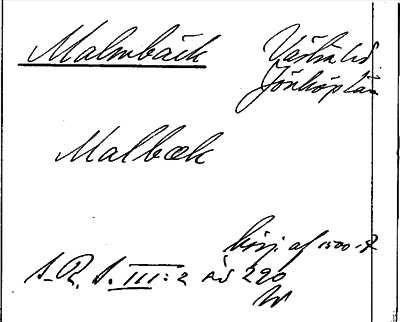 Malmbäck Västra hd
Jönköp län
Malbæk
börj. af 1500-t.
S.R.S. III:2 sid 290